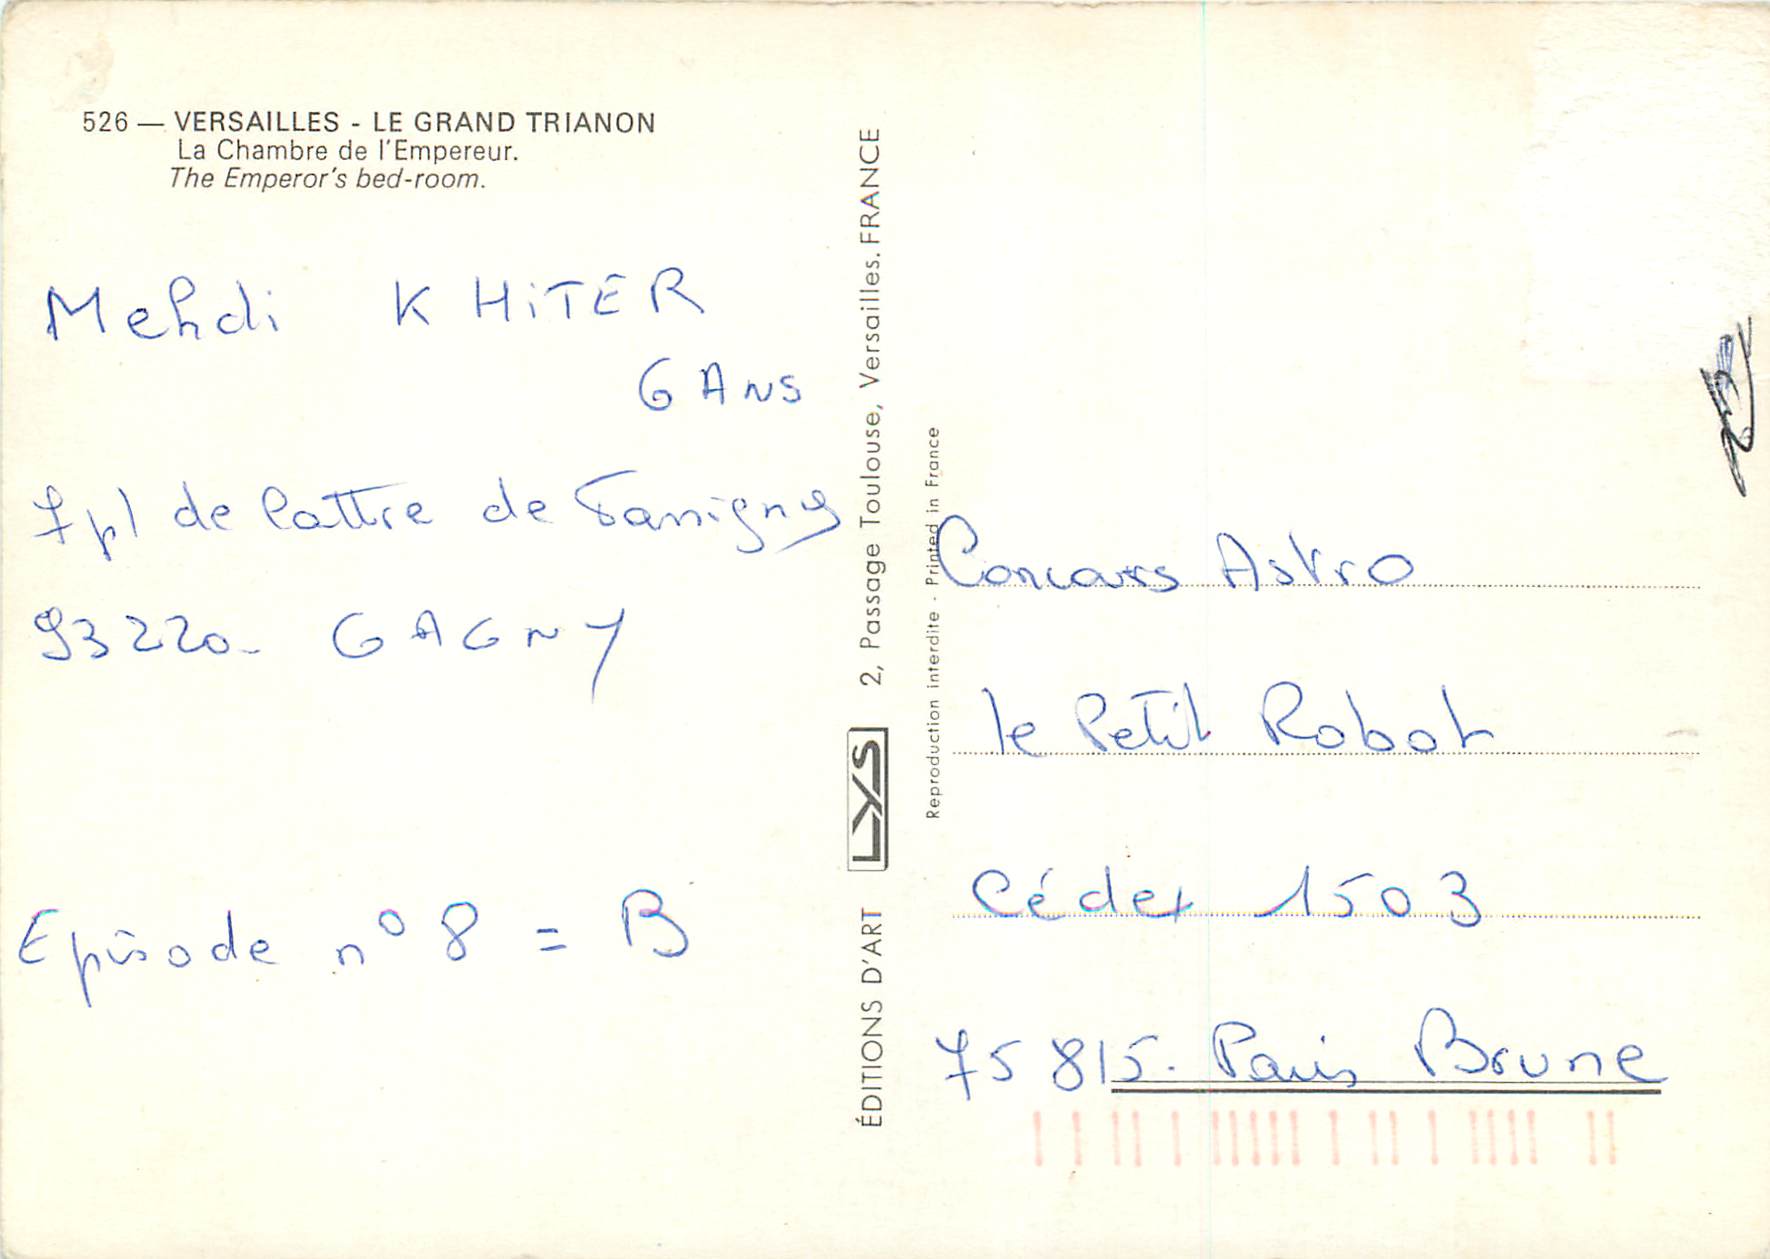 526 — VERSAILLES - LE GRAND TRIANON
La Chambre de l'Empereur.
The Emperor's bed-room.
Mehdi KHiTER
6 ANS
7 pl de lattre de Tassigny
93220 - GAGNY
Episode n° 8 = B
ÉDITIONS D'ART LYS 2, Passage Toulouse, Versailles. FRANCE
Reproduction interdite - Printed in France
Concours Astro
le Petit Robot
Cédex 1503
75815. Paris Brune